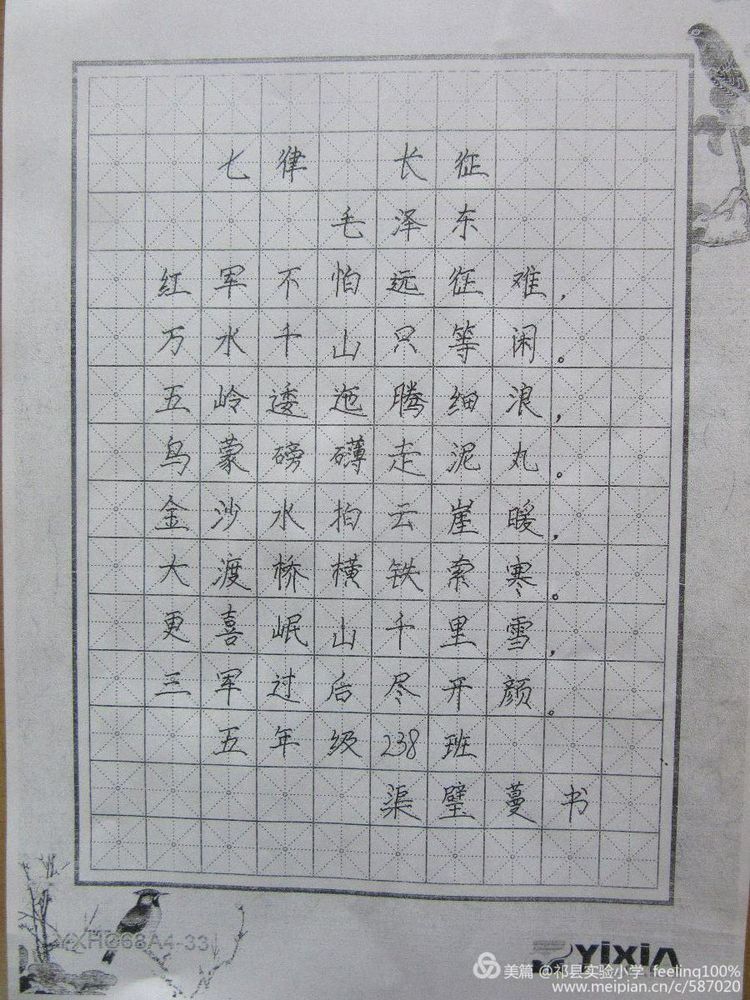 七律 长征
毛泽东
红军不怕远征难，
万水千山只等闲。
五岭逶迤腾细浪，
乌蒙磅礴走泥丸。
金沙水拍云崖暖，
大渡桥横铁索寒。
更喜岷山千里雪，
三军过后尽开颜。
五年级238班
渠璧蔓书
YXHC68A4-33
YIXIN
美篇 @祁县实验小学 feeling100%
www.meipian.cn/c/587020